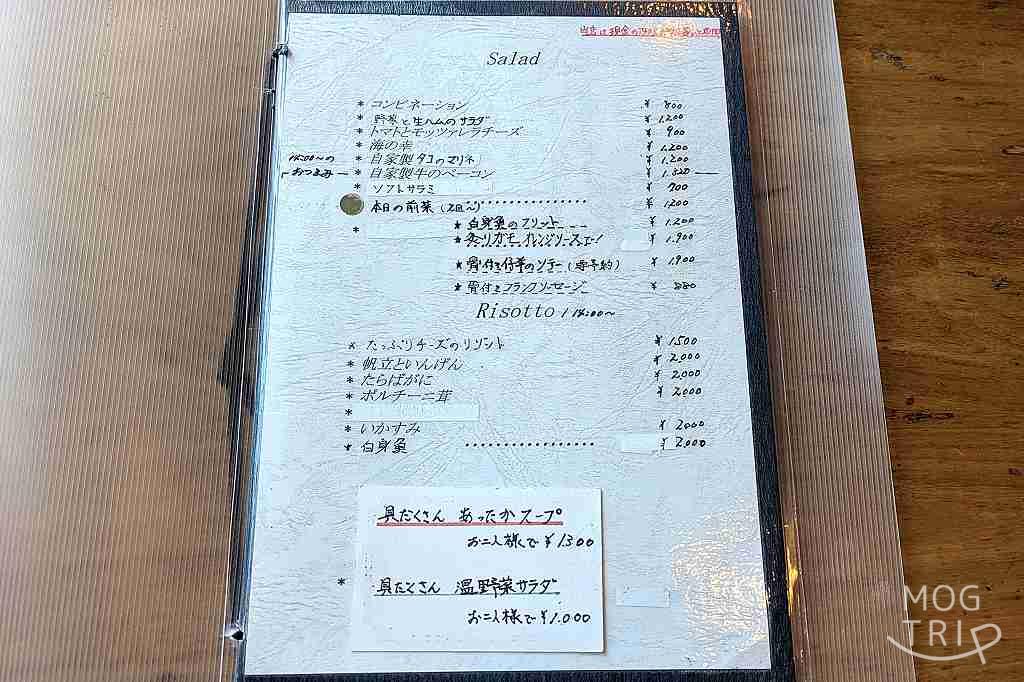 当店は現金の
Salad
* コンビネーション ¥ 800
* 野菜と生ハムのサラダ ¥1.200
* トマトとモッツァレラチーズ ¥ 900
* 海の幸 ¥ 1.200
14:00〜の
おつまみ
* 自家製タコのマリネ ¥ 1.200
* 自家製牛のベーコン ¥
* ソフトサラミ ¥ 700
本日の前菜 ¥ 1200
*
★ 白身魚のフリット ¥ 1.200
★ 炙りガモ オレンジソースで! ¥ 1.900
★ 骨付き仔羊のソテー (要予約) ¥ 1.900
★ 骨付きフランクソーセージ ¥ 880
Risotto / 14:00〜
* たっぷりチーズのリゾット ¥ 1500
* 帆立といんげん ¥ 2.000
* たらばがに ¥ 2.000
* ポルチーニ茸 ¥ 2.000
*
* いかすみ ¥ 2.000
* 白身魚 ¥ 2.000
具だくさん あったかスープ
お二人様で ¥1300
*
具だくさん 温野菜サラダ
お二人様で ¥1.000
MOG
TRIP